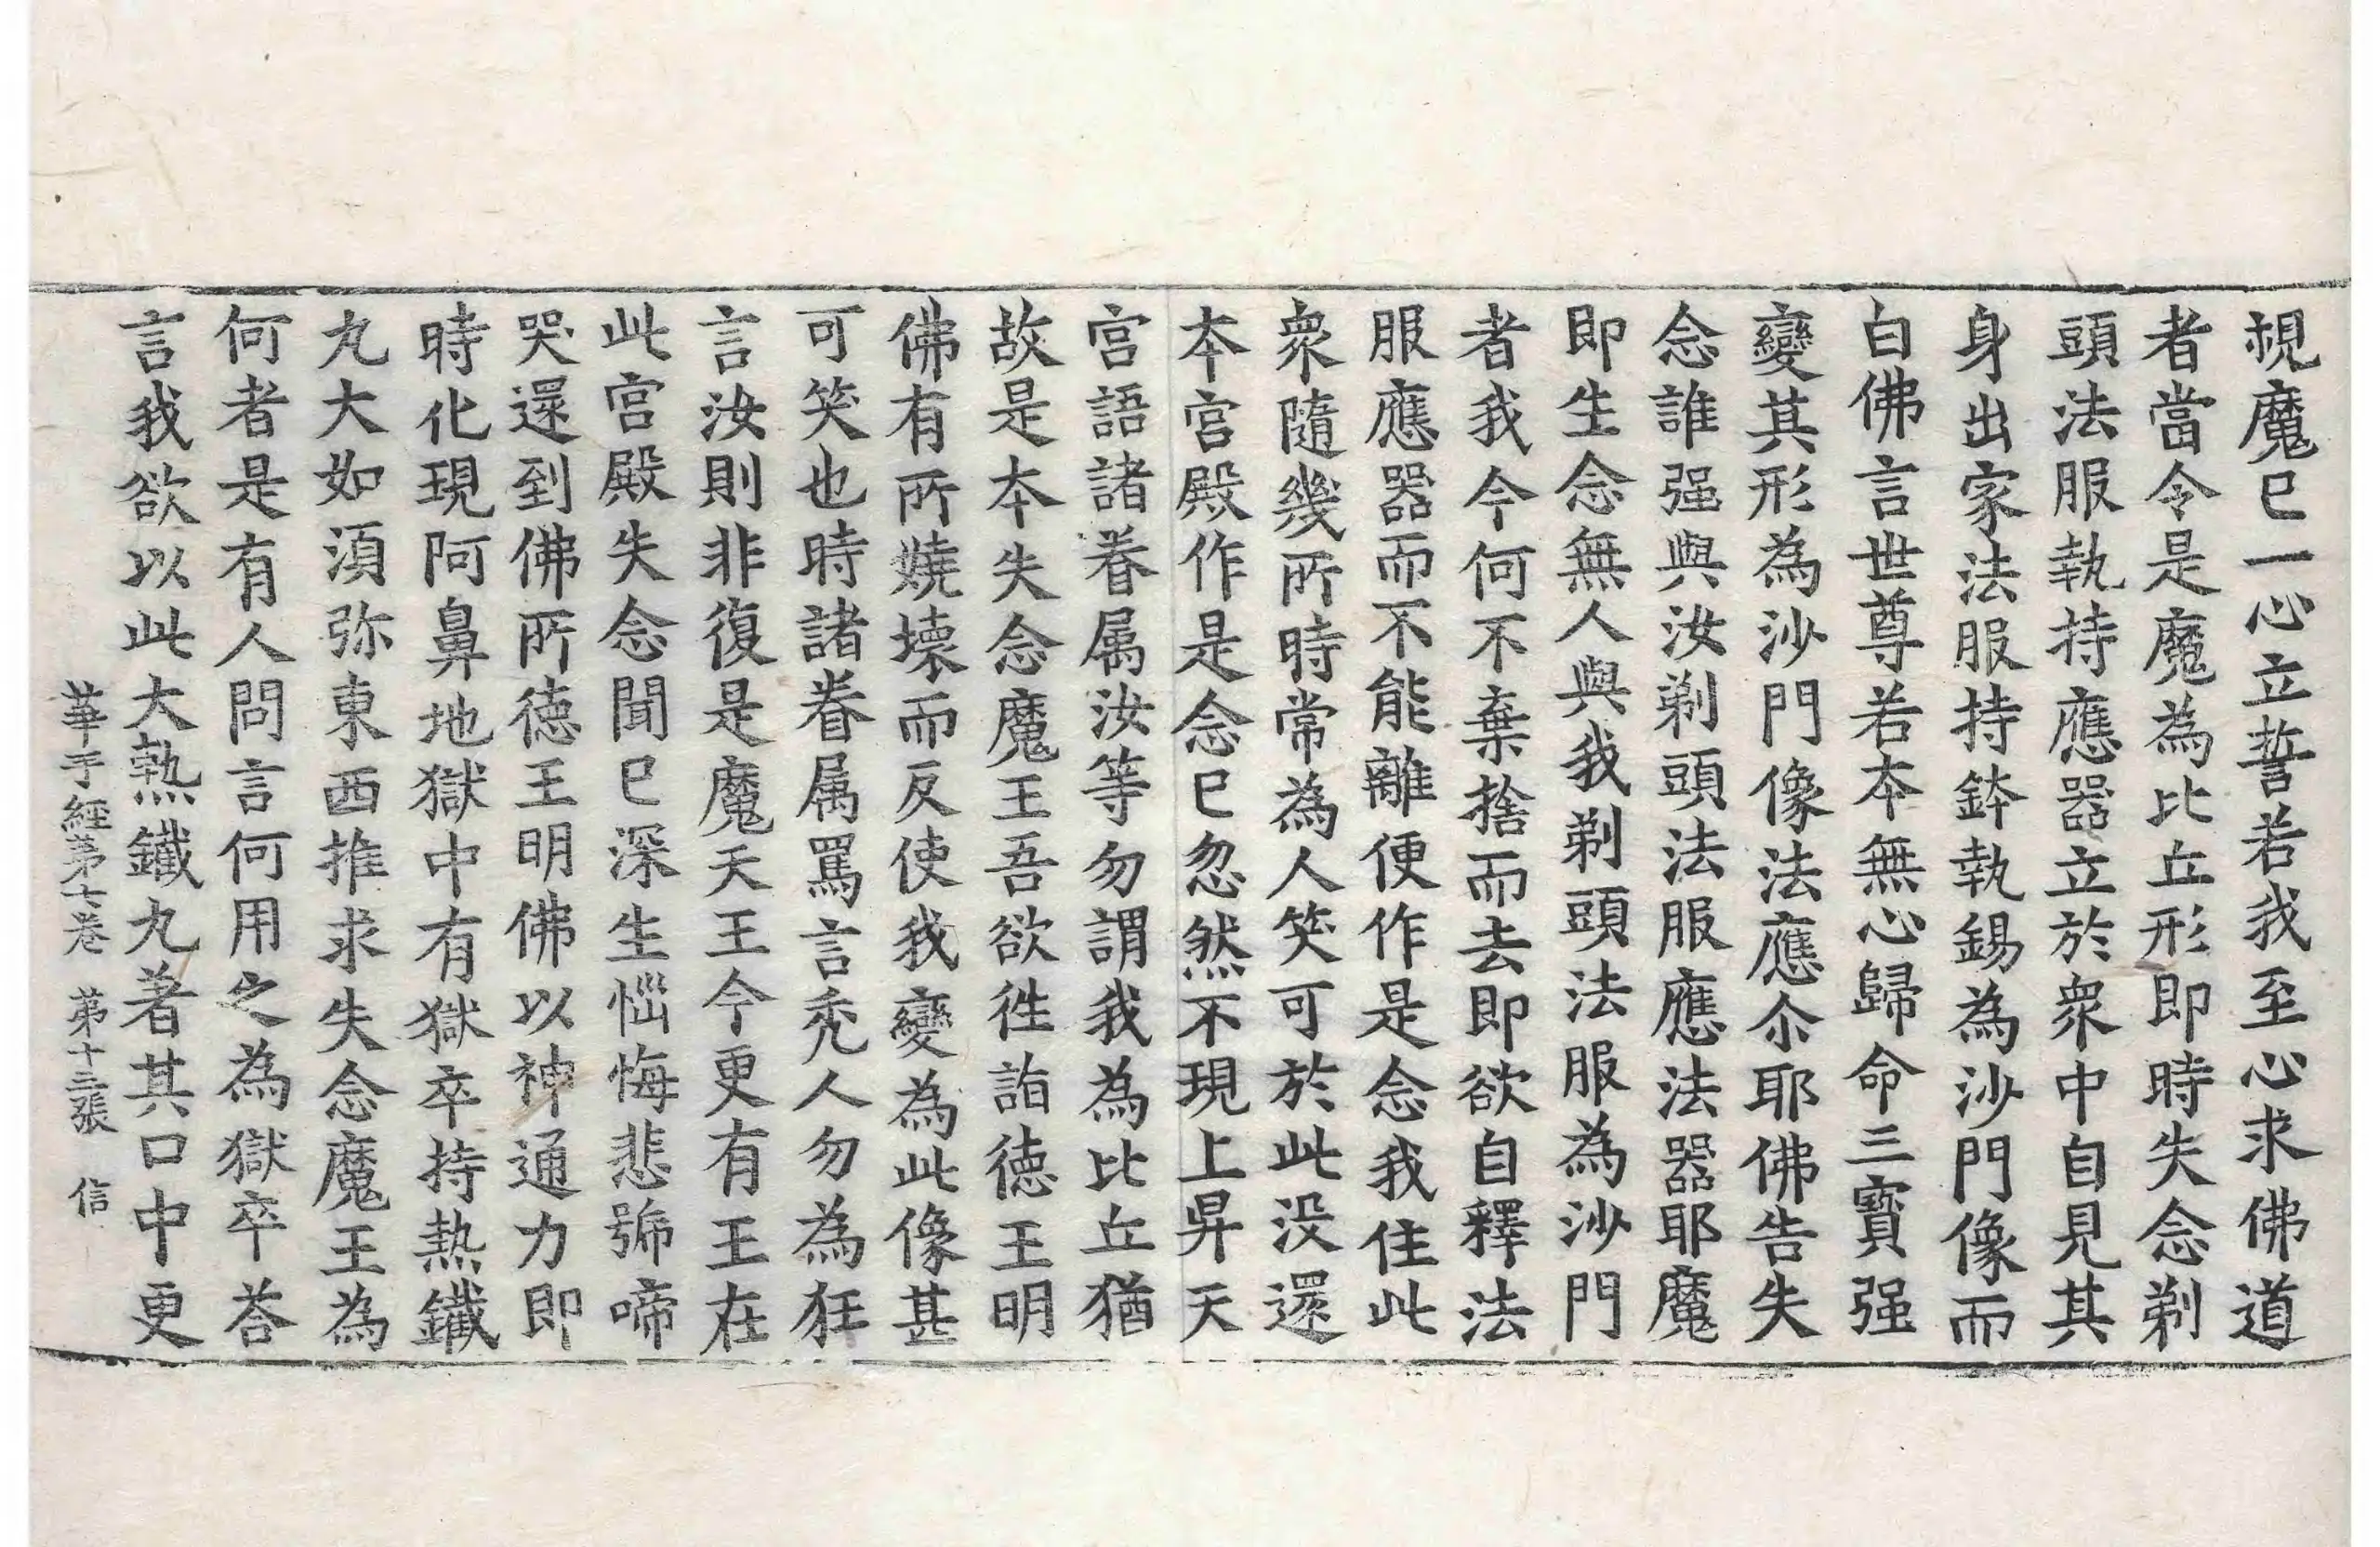 覩魔已一心立誓若我至心求佛道
者當令是魔為比丘形即時失念剃
頭法服執持應器立於衆中自見其
身出家法服持鉢執錫為沙門像而
白佛言世尊若本無心歸命三寶强
變其形為沙門像法應尒耶佛告失
念誰强與汝剃頭法服應法器耶魔
即生念無人與我剃頭法服為沙門
者我今何不棄捨而去即欲自釋法
服應器而不能離便作是念我住此
衆隨幾所時常為人笑可於此没還
本宫殿作是念已忽然不現上昇天
宫語諸眷属汝等勿謂我為比丘猶
故是本失念魔王吾欲徃詣徳王明
佛有所嬈壞而反使我變為此像甚
可笑也時諸眷属罵言秃人勿為狂
言汝則非復是魔天王今更有王在
此宫殿失念聞已深生惱悔悲號啼
哭還到佛所徳王明佛以神通力即
時化現阿鼻地獄中有獄卒持熱鐵
丸大如湏弥東西推求失念魔王為
何者是有人問言何用之為獄卒荅
言我欲以此大熱鐵丸著其口中更
華手經第七卷 第十三張 信